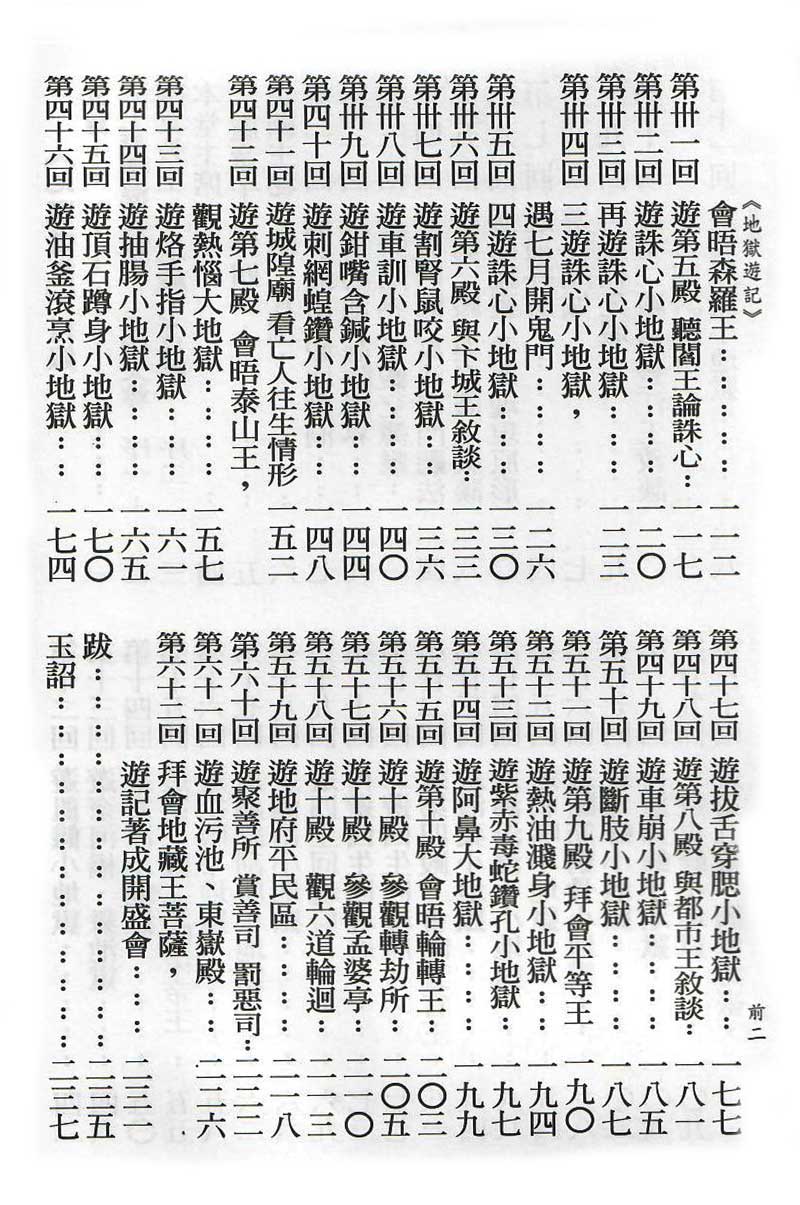 《地獄遊記》
會晤森羅王：：：：：一一二
第卅一回 遊第五殿 聽閻王論誅心：一一七
第卅二回 遊誅心小地獄：：：：一二〇
第卅三回 再遊誅心小地獄：：：一二三
第卅四回 三遊誅心小地獄，
遇七月開鬼門：：：：一二六
第卅五回 四遊誅心小地獄：：：一三〇
第卅六回 遊第六殿 與卞城王敘談：一三三
第卅七回 遊割腎鼠咬小地獄：：一三六
第卅八回 遊車訓小地獄：：：：一四〇
第卅九回 遊鉗嘴含鍼小地獄：：一四四
第四十回 遊刺網蝗鑽小地獄：：一四八
第四十一回 遊城隍廟 看亡人往生情形一五二
第四十二回 遊第七殿 會晤泰山王，
觀熱惱大地獄：：：：一五七
第四十三回 遊烙手指小地獄：：：一六一
第四十四回 遊抽腸小地獄：：：：一六五
第四十五回 遊頂石蹲身小地獄：：一七〇
第四十六回 遊油釜滾烹小地獄：：一七四
前二
第四十七回 遊拔舌穿腮小地獄：：一七七
第四十八回 遊第八殿 與都市王敘談：一八一
第四十九回 遊車崩小地獄：：：：一八五
第五十回 遊斷肢小地獄：：：：一八七
第五十一回 遊第九殿 拜會平等王一九〇
第五十二回 遊熱油濺身小地獄：：一九四
第五十三回 遊紫赤毒蛇鑽孔小地獄：一九七
第五十四回 遊阿鼻大地獄：：：：一九九
第五十五回 遊第十殿 會晤輪轉王：二〇三
第五十六回 遊十殿 參觀轉劫所：二〇五
第五十七回 遊十殿 參觀孟婆亭：二一〇
第五十八回 遊十殿 觀六道輪迴：二一三
第五十九回 遊地府平民區：：：：二一八
第六十回 遊聚善所 賞善司 罰惡司：二二二
第六十一回 遊血污池、東嶽殿：：二二六
第六十二回 拜會地藏王菩薩，
遊記著成開盛會：：：二三一
跋：：：：：：：：：：：二三五
玉詔：：：：：：：：：：二三七